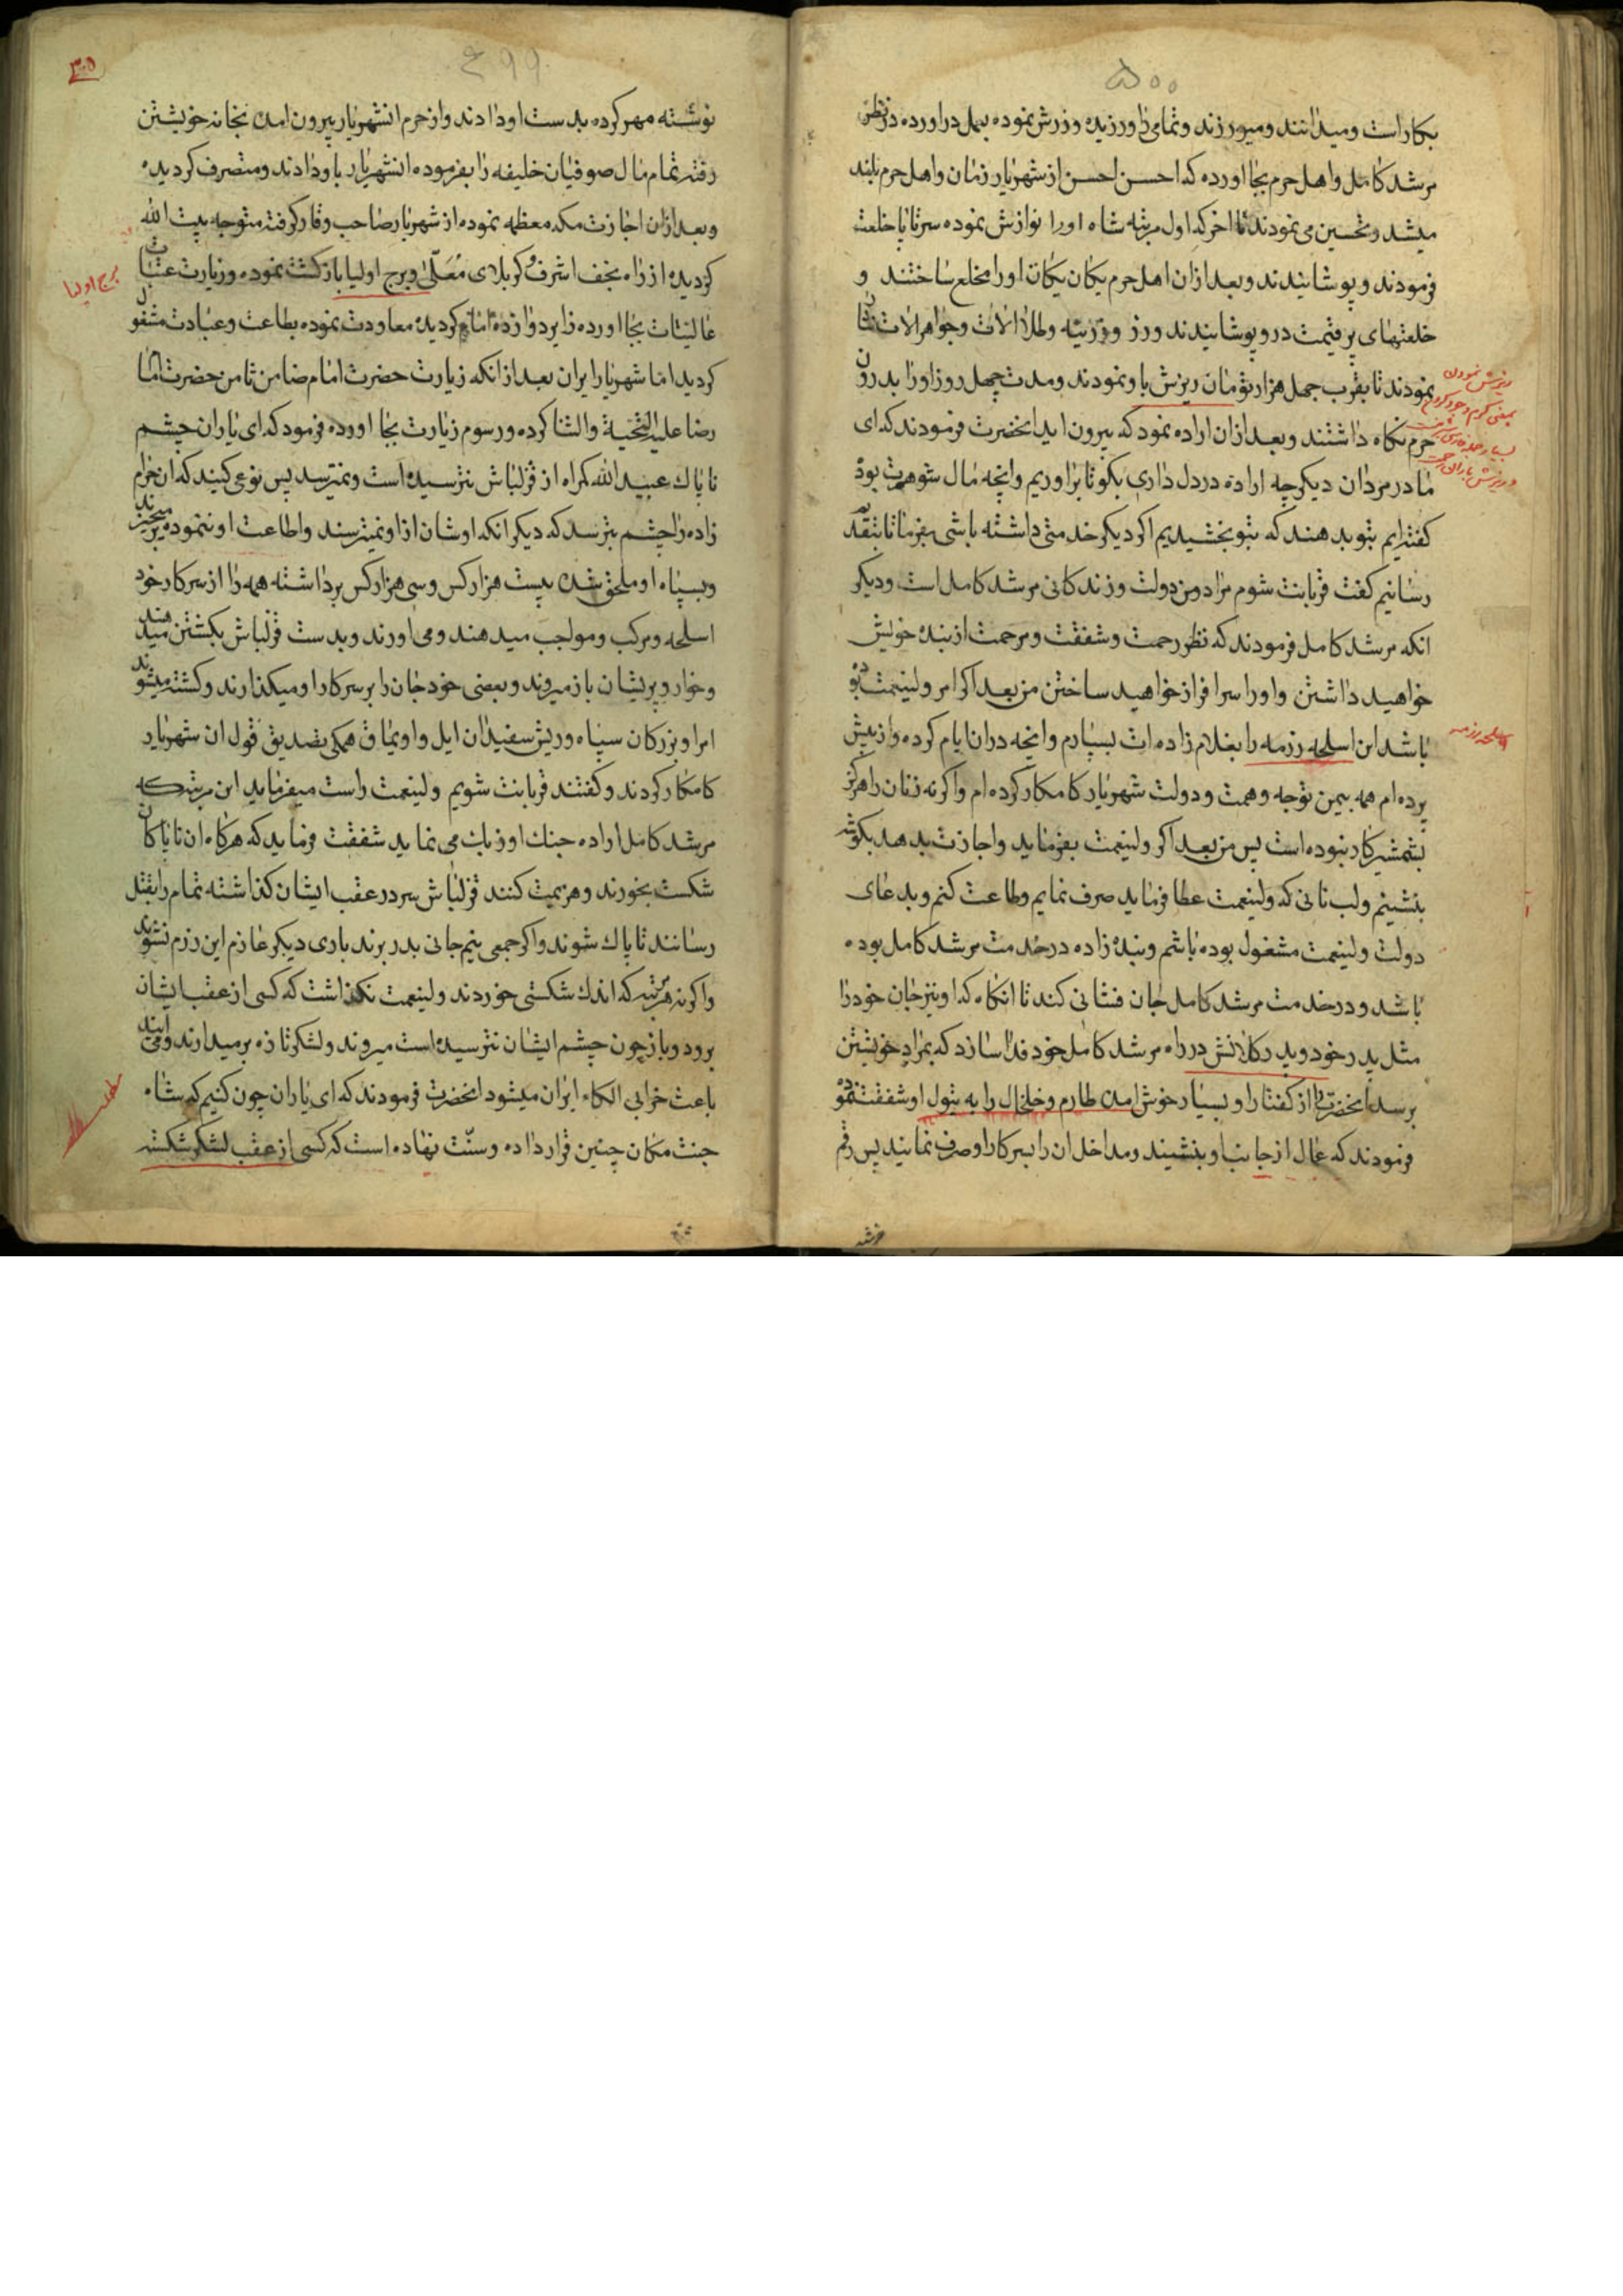 ۵۰۰
بکار است و میدانند و میورزند و تمامی را ورزیده و ورزش نموده بعمل دراورده در نظر
مرشد کامل و اهل حرم بجا اورده که احسن احسن از شهریار زمان و اهل حرم بلند
میشد و تحسین می نمودند تا اخر که اول مرتبه شاه اورا نوازش نموده سرتاپا خلعت
فرمودند و پوشانیدند و بعد ازان اهل حرم یکان یکان اورا مخلع ساختند و
خلعتهای پر قیمت درو پوشانیدند و زر و زرینه و طلا الات و جواهر الات نثار
نمودند تا بقرب چهل هزار تومان ریزش باو نمودند و مدت چهل روز اورا بدرون
حرم نکاه داشتند و بعد ازان اراده نمود که بیرون اید انحضرت فرمودند که ای
مادر مردان دیکر چه اراده در دل داری بکو تا براوریم و انچه مال شوهرت بود
کفته ایم بتو بدهند که بتو بخشیدیم اکر دیکر خدمتی داشته باشی بفرما تا بتقدیم
رسانیم کفت قربانت شوم مراد من دولت و زندکانی مرشد کامل است و دیکر
انکه مرشد کامل فرمودند که نظر رحمت و شفقت و مرحمت از بنده خویش
خواهید داشتن و اورا سرافراز خواهید ساختن من بعد اکر امر ولینعمت بوده
باشد این اسلحه رزمه را بغلام زاده ات بسپارم و انچه دران ایام کرده و از پیش
برده ام همه بیمن توجه و همت و دولت شهریار کامکار کرده ام و اکرنه زنان را هرکز
بشمشیر کار نبوده است پس من بعد اکر ولینعمت بفرماید و اجازت بدهد بکوشه
بنشینم و لب نانی که ولینعمت عطا فرماید صرف نمایم و طاعت کنم و بدعای
دولت ولینعمت مشغول بوده باشم و بنده زاده در خدمت مرشد کامل بوده
باشد و در خدمت مرشد کامل جان فشانی کند تا انکاه که او نیز جان خود را
مثل پدر خود و پدر کلانش در راه مرشد کامل خود فدا سازد که بمراد خویشتن
برسد انحضرت را از کفتار او بسیار خوش امده طارم و خلخال را به تیول او شفقت نموده
فرمودند که عمال از جانب او بنشیند و مداخل ان را بسرکار او صرف نمایند پس رقم
ریزش نمودن
بمعنی کرم و جود کردن
اسلحه رزمه
۴۹۹
۳۰۵
نوشته مهر کرده بدست او دادند و از حرم انشهریار بیرون امده بخانه خویشتن
رفته تمام مال صوفیان خلیفه را بفرموده انشهریار باو دادند و متصرف کردیده
و بعد ازان اجازت مکه معظمه نموده از شهریار صاحب وقار کرفته متوجه بیت الله
کردیده از راه نجف اشرف و کربلای معلی و برج اولیا بازکشت نموده و زیارت عتبات
عالیات بجا اورده زایر دوازده امام کردیده معاودت نموده بطاعت و عبادت مشغول
کردید اما شهریار ایران بعد از انکه زیارت حضرت امام ضامن ثامن حضرت امام
رضا علیه التحیة والثنا کرده و رسوم زیارت بجا اورده فرمود که ای یاران چشم
ناپاک عبید الله کمراه از قزلباش نترسیده است و نمیترسد پس نوعی کنید که ان حرام
زاده را چشم بترسد که دیکر انکه اوشان ازاو نمیترسند و اطاعت او ننموده میخیزند
و بسپاه او ملحق شده بیست هزار کس و سی هزار کس برداشته همه را از سرکار خود
اسلحه و مرکب و مواجب میدهند و می اورند و بدست قزلباش بکشتن میدهند
و خوار و پریشان باز میروند و بعضی خود جان را بر سر کار او میکذارند و کشته میشوند
امرا و بزرکان سپاه و ریش سفیدان ایل و اویماق همکی تصدیق قول ان شهریار
کامکار کردند و کفتند قربانت شویم ولینعمت راست میفرماید این مرتبه که
مرشد کامل اراده جنک اوزبک می نماید شفقت فرماید که هرکاه ان ناپاکان
شکست بخورند و هزیمت کنند قزلباش سر در عقب ایشان کذاشته تمام را بقتل
رسانند تا پاک شوند و اکر جمعی نیم جانی بدر برند باری دیکر عازم این رزم نشوند
و اکرنه هر مرتبه که اندک شکستی خوردند ولینعمت نکذاشت که کسی از عقب ایشان
برود و باز چون چشم ایشان نترسیده است میروند و لشکر تازه برمیدارند و می ایند
باعث خرابی الکاء ایران میشود انحضرت فرمودند که ای یاران چون کنیم که شاه
جنت مکان چنین قرار داده و سنت نهاده است که کسی از عقب لشکر شکسته
برج اولیا